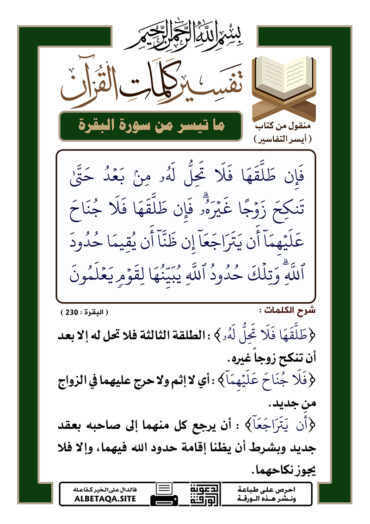 بِسْمِ اللَّهِ الرَّحْمَٰنِ الرَّحِيمِ
تفسير كلمات القرآن
ما تيسر من سورة البقرة
منقول من كتاب
( أيسر التفاسير )
فَإِن طَلَّقَهَا فَلَا تَحِلُّ لَهُۥ مِنۢ بَعْدُ حَتَّىٰ
تَنكِحَ زَوْجًا غَيْرَهُۥۗ فَإِن طَلَّقَهَا فَلَا جُنَاحَ
عَلَيْهِمَآ أَن يَتَرَاجَعَآ إِن ظَنَّآ أَن يُقِيمَا حُدُودَ
ٱللَّهِۗ وَتِلْكَ حُدُودُ ٱللَّهِ يُبَيِّنُهَا لِقَوْمٍ يَعْلَمُونَ
شرح الكلمات :
( البقرة : 230 )
﴿طَلَّقَهَا فَلَا تَحِلُّ لَهُۥ﴾ : الطلقة الثالثة فلا تحل له إلا بعد
أن تنكح زوجاً غيره.
﴿فَلَا جُنَاحَ عَلَيْهِمَآ﴾ : أي لا إثم ولا حرج عليهما في الزواج
من جديد.
﴿أَن يَتَرَاجَعَآ﴾ : أن يرجع كل منهما إلى صاحبه بعقد
جديد وبشرط أن يظنا إقامة حدود الله فيهما، وإلا فلا
يجوز نكاحهما.
احرص على طباعة
ونشر هذه الورقة
الدعوية
الورقة
فالدال على الخير كفاعله
ALBETAQA.SITE